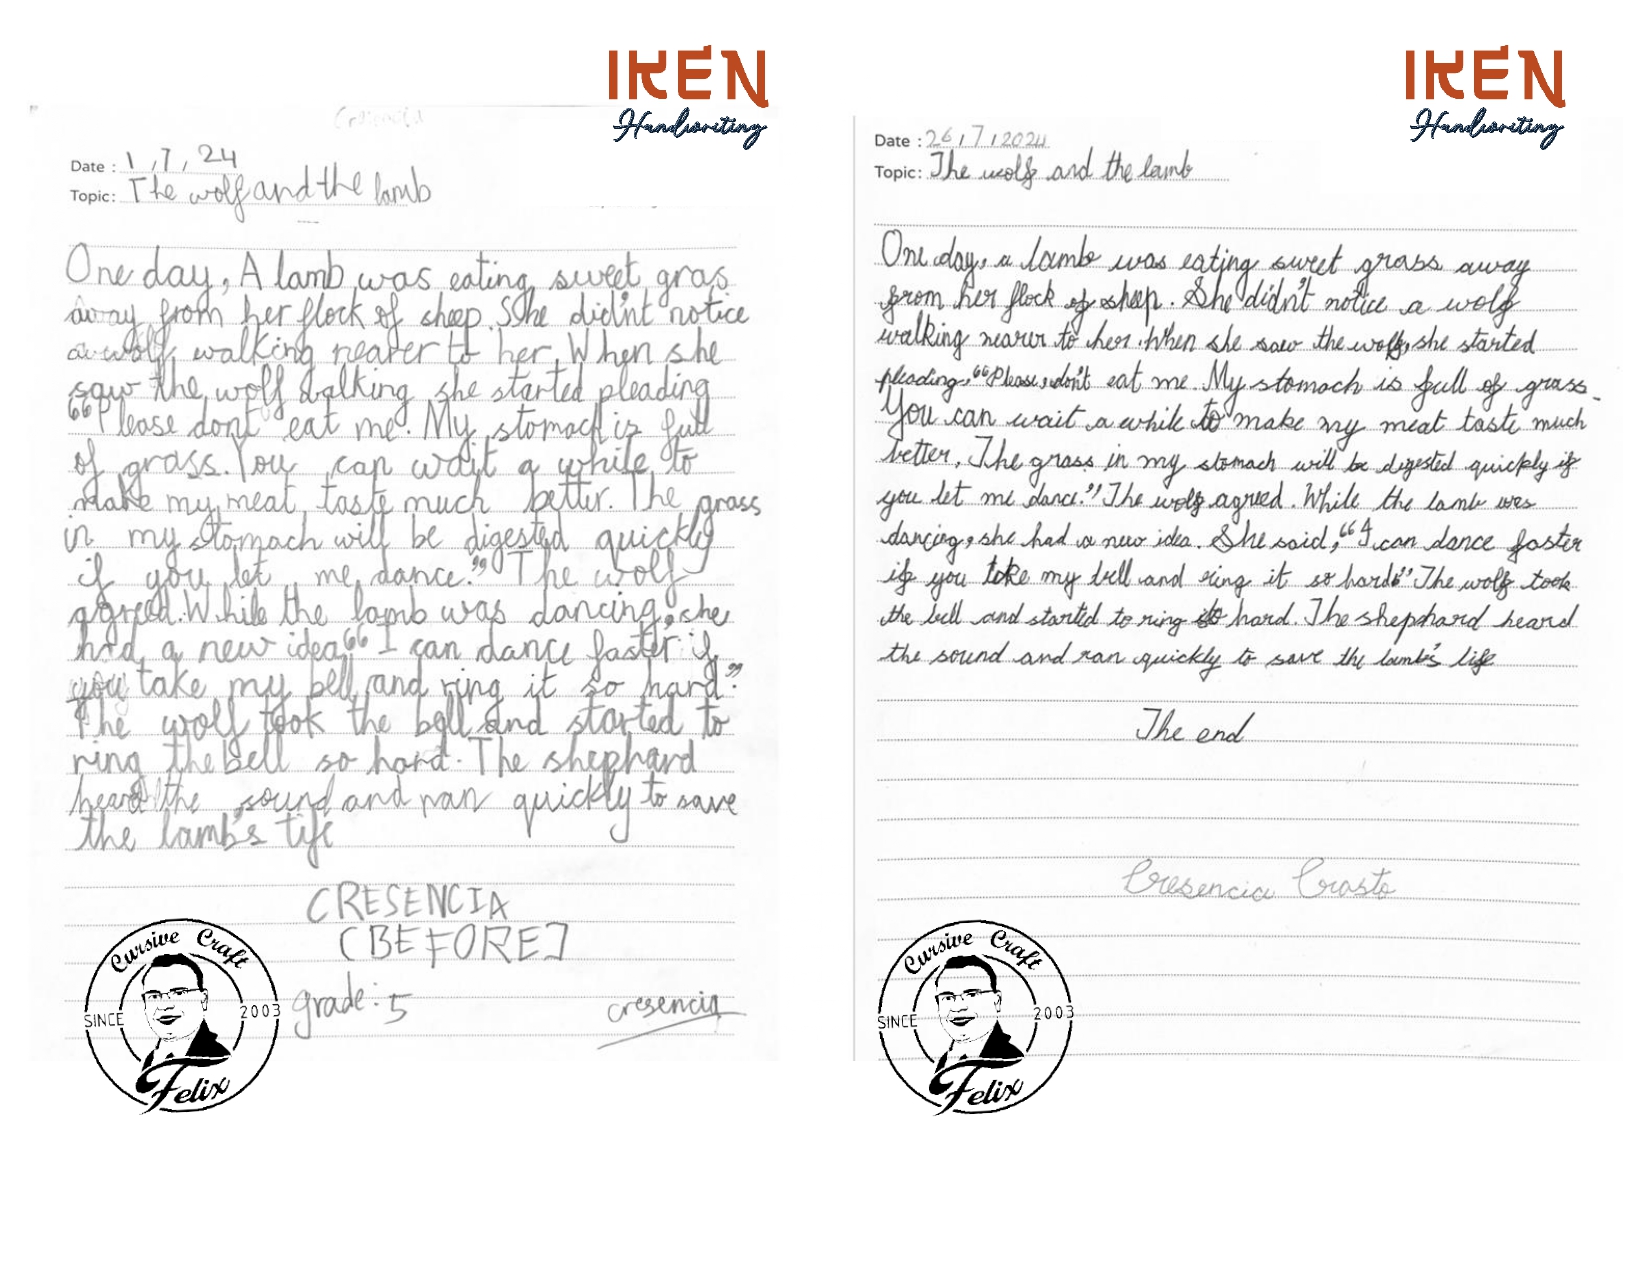 IKEN
Handwriting
Cresencia
Date : 1, 7, 24
Topic: The wolf and the lamb
One day, A lamb was eating sweet gras
away from her flock of sheep. SShe did'nt notice
a wolf walking nearer to her. When she
saw the wolf walking she started pleading
“Please dont eat me. My stomach is full
of grass. You can wait a while to
make my meat taste much better. The grass
in my stomach will be digested quickly
if you let me dance.” The wolf
agreed. While the lamb was dancing, she
had a new idea “I can dance faster if
you take my bell and ring it so hard”.
The wolf took the bell and started to
ring the bell so hard. The shephard
heard the sound and ran quickly to save
the lamb's life
CRESENCIA
(BEFORE]
grade: 5
cresencia
Cursive Craft
SINCE 2003
Felix
IKEN
Handwriting
Date : 26/7/2024
Topic: The wolf and the lamb
One day, a lamb was eating sweet grass away
from her flock of sheep. She didn't notice a wolf
walking nearer to her. When she saw the wolf, she started
pleading. “Please, don't eat me. My stomach is full of grass.
You can wait a while to make my meat taste much
better. The grass in my stomach will be digested quickly if
you let me dance.” The wolf agreed. While the lamb was
dancing, she had a new idea. She said, “I can dance faster
if you take my bell and ring it so hard.” The wolf took
the bell and started to ring so hard. The shephard heard
the sound and ran quickly to save the lamb's life
The end
Cresencia Crasto
Cursive Craft
SINCE 2003
Felix